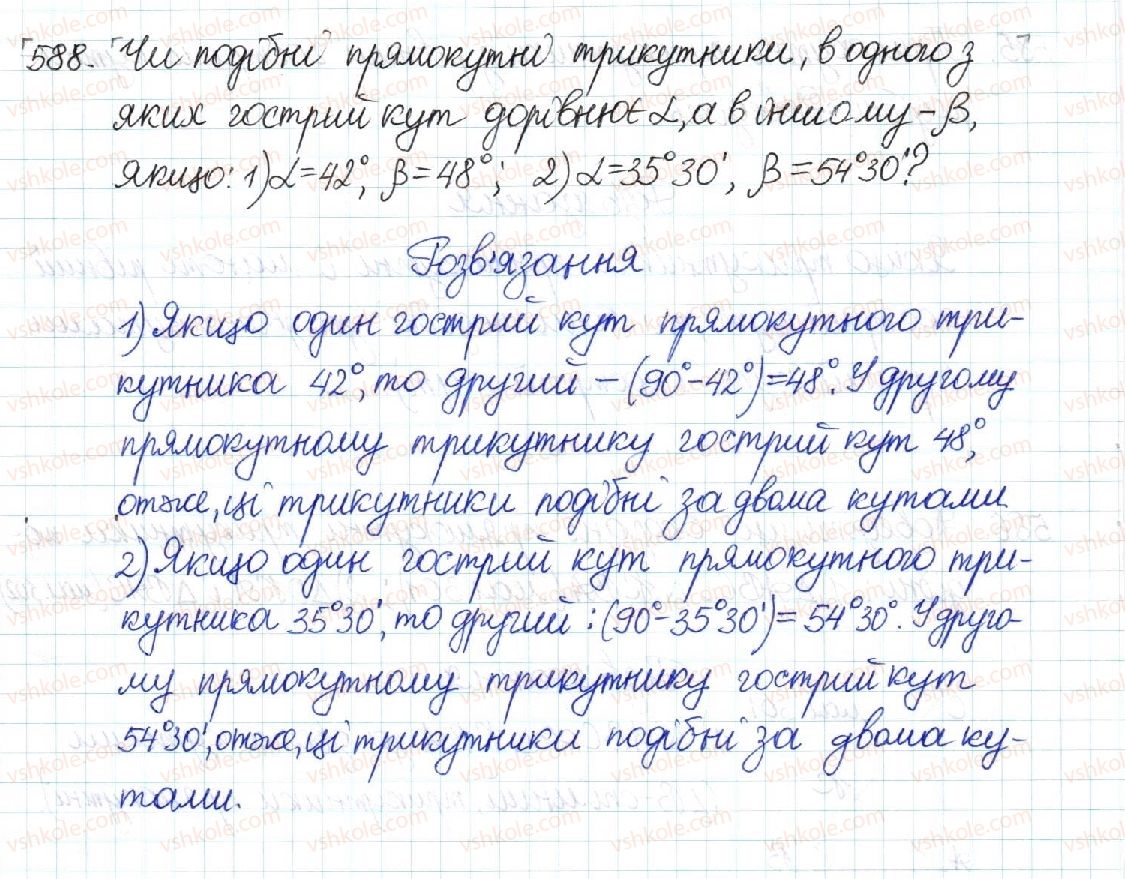 588. Чи подібні прямокутні трикутники, в одного з
яких гострий кут дорівнює α, а в іншому - β,
якщо: 1) α=42°, β=48°; 2) α=35°30', β=54°30'?
Розв'язання
1) Якщо один гострий кут прямокутного три-
кутника 42°, то другий - (90°-42°)=48°. У другому
прямокутному трикутнику гострий кут 48°,
отже, ці трикутники подібні за двома кутами.
2) Якщо один гострий кут прямокутного три-
кутника 35°30', то другий : (90°-35°30')=54°30°. У друго-
му прямокутному трикутнику гострий кут
54°30', отже, ці трикутники подібні за двома ку-
тами.